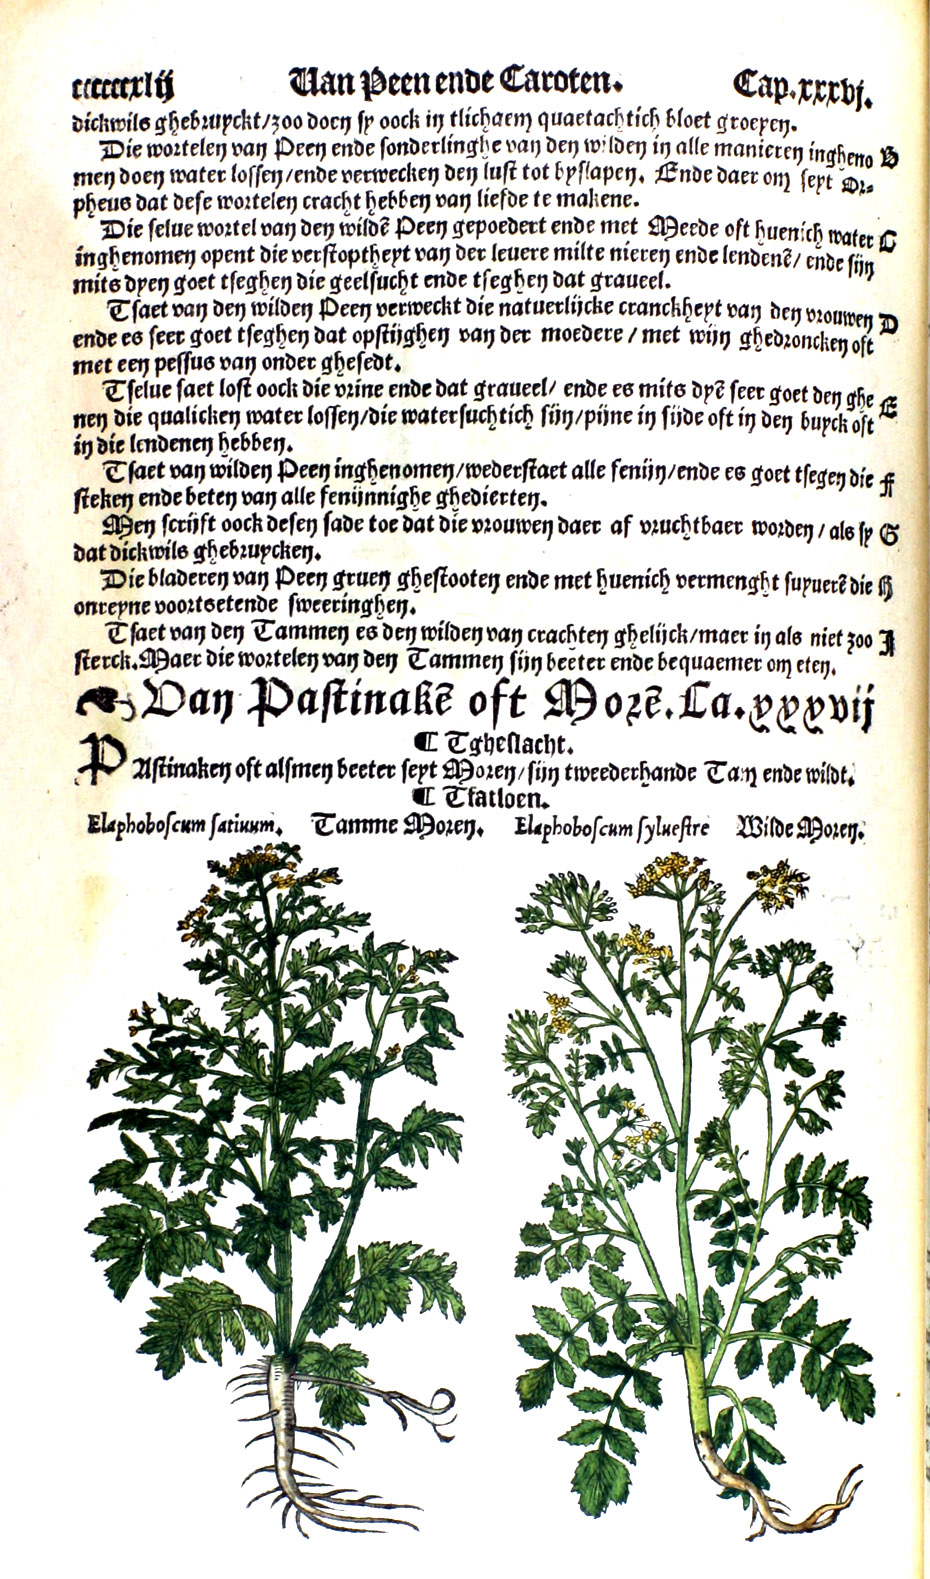 ccccccxlij Van Peen ende Caroten. Cap.xxxvj.
dickwils ghebruyckt/zoo doen sy oock in tlichaem quaetachtich bloet groeyen.
Die wortelen van Peen ende sonderlinghe van den wilden in alle manieren ingheno B
men doen water lossen/ende verwecken den lust tot byslapen. Ende daer om seyt Or⸗
pheus dat dese wortelen cracht hebben van liefde te makene.
Die selue wortel van den wildē Peen gepoedert ende met Meede oft huenich water C
inghenomen opent die verstoptheyt van der leuere milte nieren ende lendenē/ ende sijn
mits dyen goet tseghen die geelsucht ende tseghen dat graueel.
Tsaet van den wilden Peen verweckt die natuerlijcke cranckheyt van den vrouwen D
ende es seer goet tseghen dat opstijghen van der moedere / met wijn ghedroncken oft
met een pessus van onder ghesedt.
Tselue saet lost oock die vrine ende dat graueel/ ende es mits dyē seer goet den ghe E
nen die qualicken water lossen/die watersuchtich sijn/pijne in sijde oft in den buyck oft
in die lendenen hebben.
Tsaet van wilden Peen inghenomen/wederstaet alle fenijn/ende es goet tsegen die F
steken ende beten van alle fenijnnighe ghedierten.
Men scrijft oock desen sade toe dat die vrouwen daer af vruchtbaer worden / als sy G
dat dickwils ghebruycken.
Die bladeren van Peen gruen ghestooten ende met huenich vermenght suyuerē die H
onreyne voortsetende sweeringhen.
Tsaet van den Tammen es den wilden van crachten ghelijck/maer in als niet zoo I
sterck.Maer die wortelen van den Tammen sijn beeter ende bequaemer om eten.
Van Pastinakē oft Morē. Ca.xxxvij
¶ Tgheslacht.
PAstinaken oft alsmen beeter seyt Moren/sijn tweederhande Tam ende wildt.
¶ Tfatsoen.
Elaphoboscum satiuum. Tamme Moren. Elaphoboscum syluestre Wilde Moren.